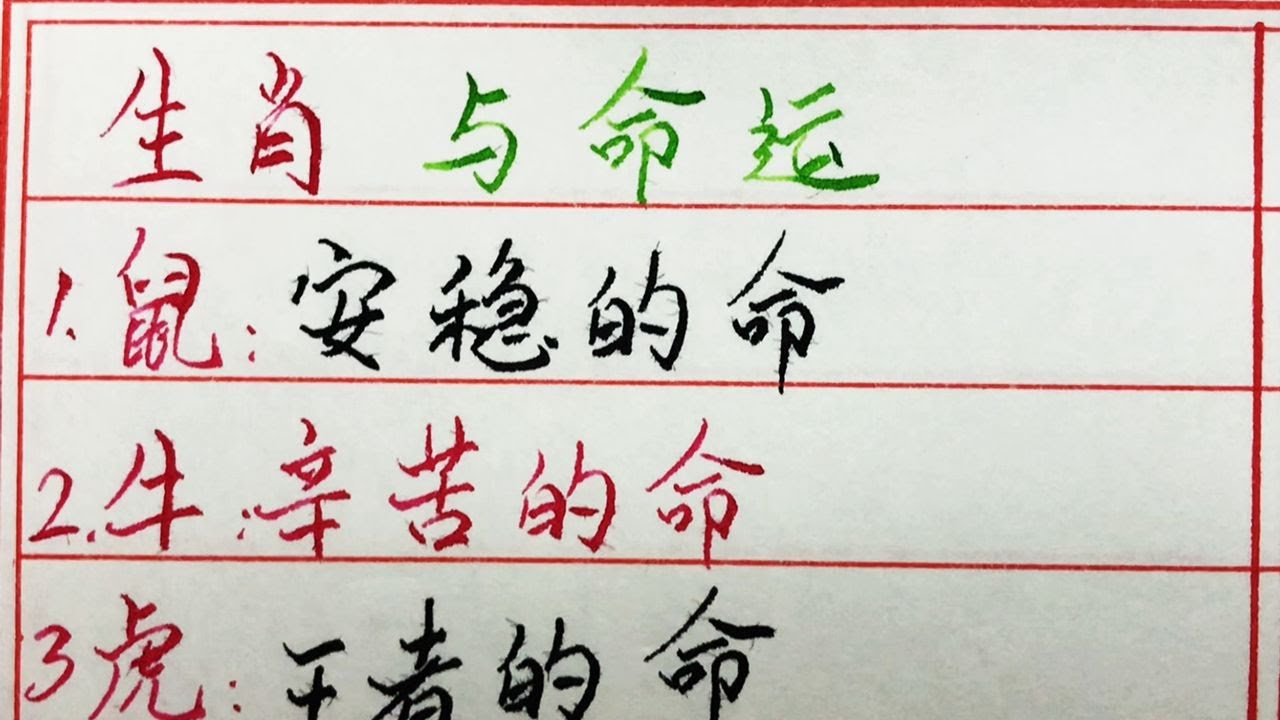 生肖与命运
1.鼠:安稳的命
2.牛:辛苦的命
3虎:王者的命